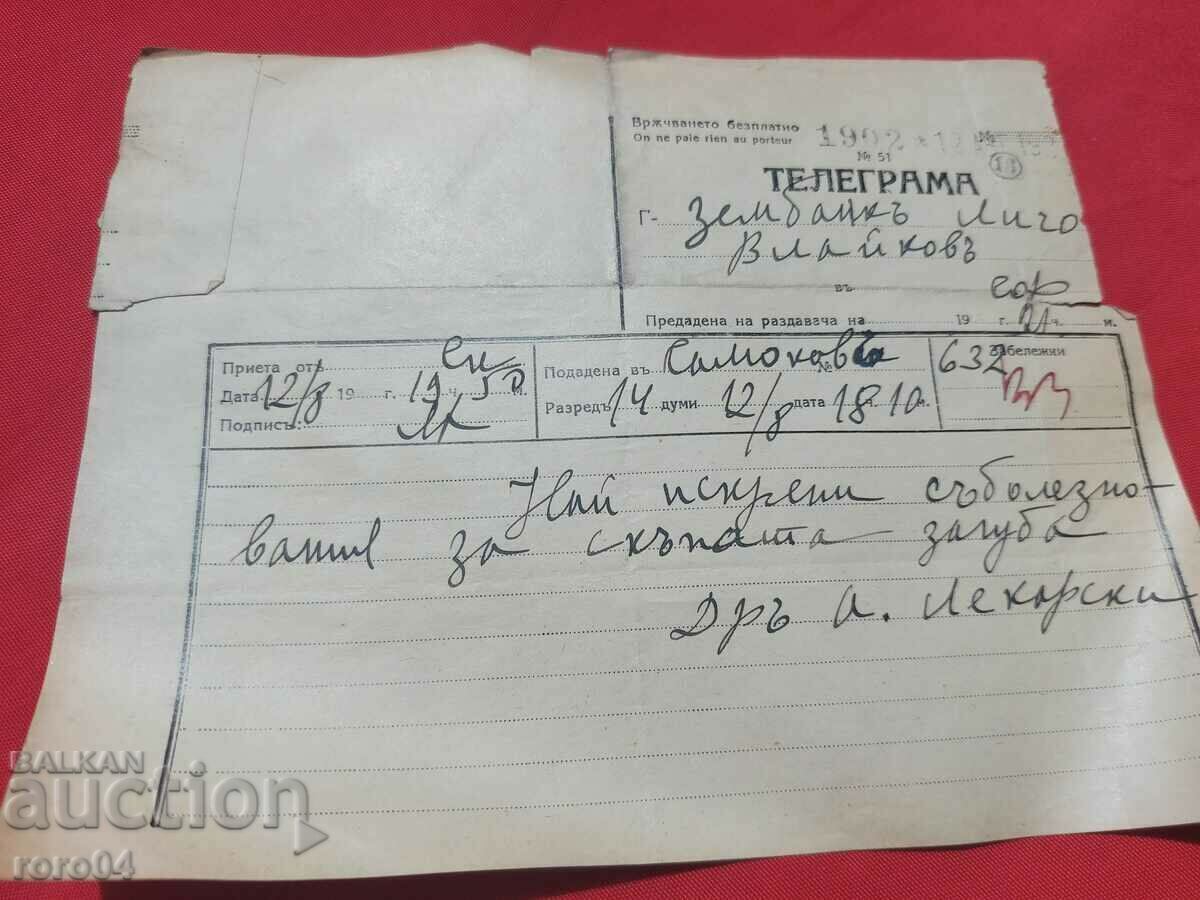 Врѫчването безплатно
On ne paie rien au porteur
1902
№
14
№ 51
ТЕЛЕГРАМА
Г- Зембанкъ Лиго
Влайковъ
въ Соф
Предадена на раздавача на 19 г. ч. м.
Приета отъ Ск Подадена въ Самоковъ № 632 Забележки
Дата 12/8 19 г. 19 ч. 50 м. Разредъ 14 думи 12/8 дата 18 ч. 10 м.
Подписъ:
Най искрени съболезно-
вания за скъпата загуба
Дръ А. Лекарски
BALKAN
auction
roro04